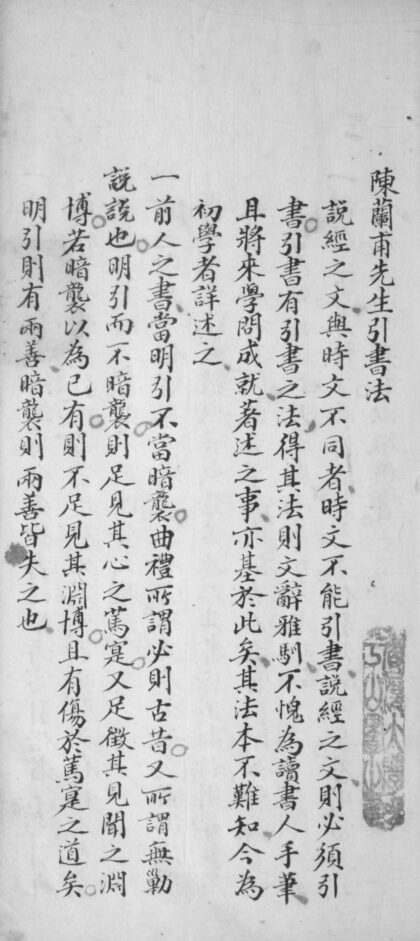 陳蘭甫先生引書法
說經之文與時文不同者時文不能引書說經之文則必須引
書引書有引書之法得其法則文辭雅馴不愧為讀書人手筆
且將來學問成就著述之事亦基於此矣其法本不難知今為
初學者詳述之
一前人之書當明引不當暗襲曲禮所謂必則古昔又所謂無勦
說說也明引而不暗襲則足見其心之篤寔又足徵其見聞之淵
博若暗襲以為己有則不足見其淵博且有傷於篤寔之道矣
明引則有兩善暗襲則兩善皆失之也